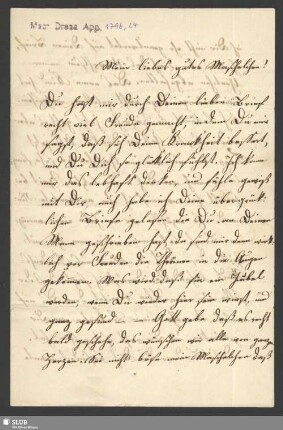 Mscr. Dresd. App. 1786, 24
Mein liebes gutes Maschelchen!
Du hast mir durch Deinen lieben Brief
recht viel Freude gemacht, indem Du mir
sagst, daß sich Deine Krankheit bessert,
und Du Dich so glücklich fühlst. Ich kann
mir das lebhaft denken, und fühle gewiß
mit Dir, auch habe ich Deine
Briefe gelesen die Du an Deine
Mama geschrieben hast, da sind mir dann
vor Freuden die Thränen in die Augen
gekommen. Was wird daß für ein Jubel
werden, wenn Du wieder hier sein wirst, und
ganz gesund — Gott gebe daß es recht
bald geschehe, das wünschen wir alle von ganzem
Herzen. Sei nicht böse mein Maschelchen daß
SLUB